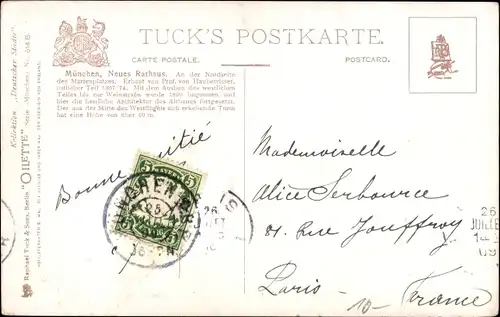 TUCK'S POSTKARTE.
CARTE POSTALE.
POSTCARD.
München, Neues Rathaus. An der Nordseite
des Marienplatzes. Erbaut von Prof. von Hauberrisser,
östlicher Teil 1867/74. Mit dem Ausbau des westlichen
Teiles bis zur Weinstraße wurde 1899 begonnen, und
hier die
Architektur des Altbaues fortgesetzt.
Der aus der Mitte des Westflügels sich erhebende Turm
hat eine Höhe von über 80 m.
Kollektion „Deutscher Städte"
Raphael Tuck & Sons, Berlin "OILETTE" Serie München
Bonne amitié
5 5
BAYERN
5 5
Mademoiselle
Alice Serbource
81. Rue Jouffroy
Paris -
France
10-
26
09